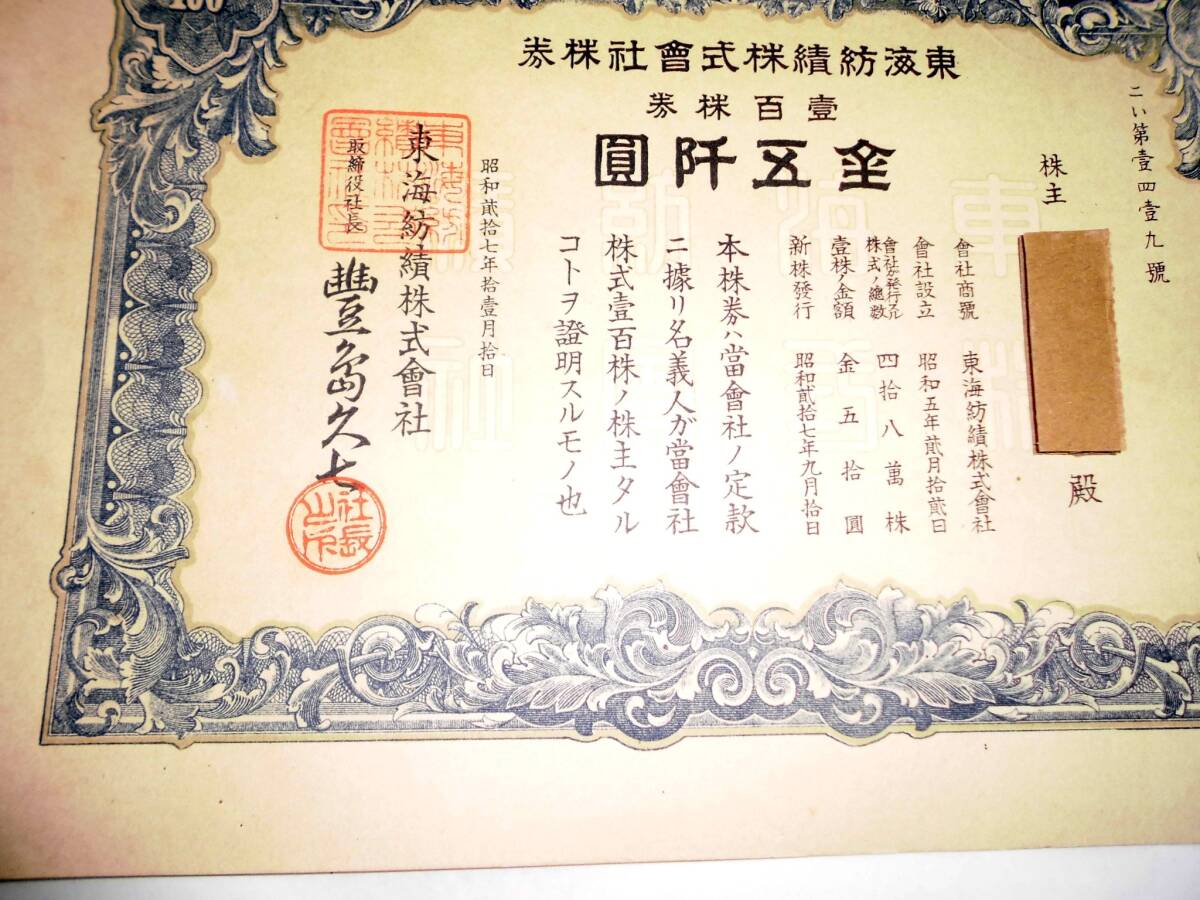 100
東海紡績株式會社株券
壹百株券
金五阡圓
ニい第壹四壹九號
株主
殿
會社商號 東海紡績株式會社
會社設立 昭和五年貳月拾貳日
會社ガ發行スル株式ノ總數 四拾八萬株
壹株ノ金額 金五拾圓
新株發行 昭和貳拾七年九月拾日
本株券ハ當會社ノ定款
ニ據リ名義人ガ當會社
株式壹百株ノ株主タル
コトヲ證明スルモノ也
昭和貳拾七年拾壹月拾日
東海紡績株式會社
取締役社長
豊島久七
社長之印